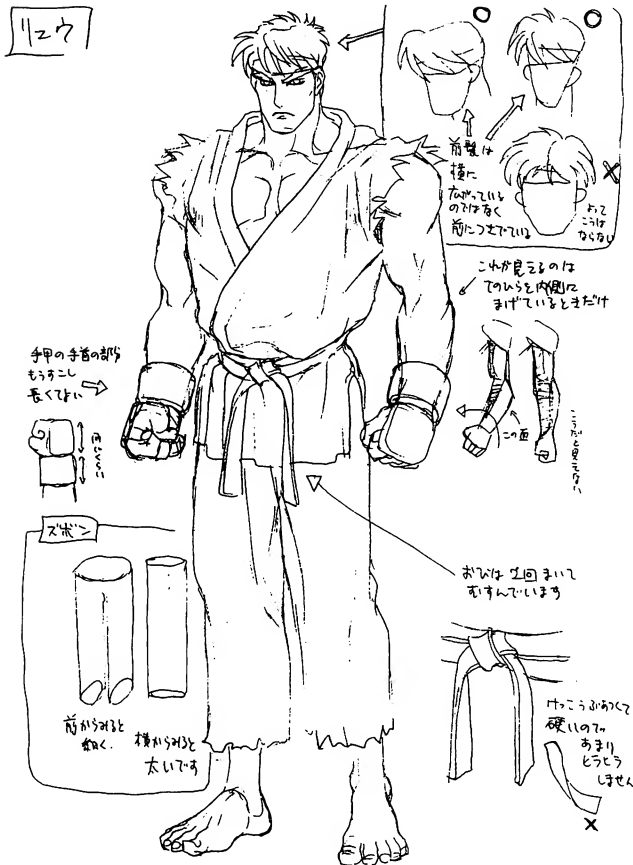 リュウ
前髪は
横に
広がっている
のではなく
前につきでている
よって
こうは
ならない
これが見えるのは
てのひらを内側に
まげているときだけ
手甲の手首の部分
もうすこし
長くてよい
同じくらい
この面
こうだと見えない
ズボン
前からみると
細く.
横からみると
太いです
おびは2回まいて
むすんでいます
けっこうぶあつくて
硬いので
あまり
ヒラヒラ
しません